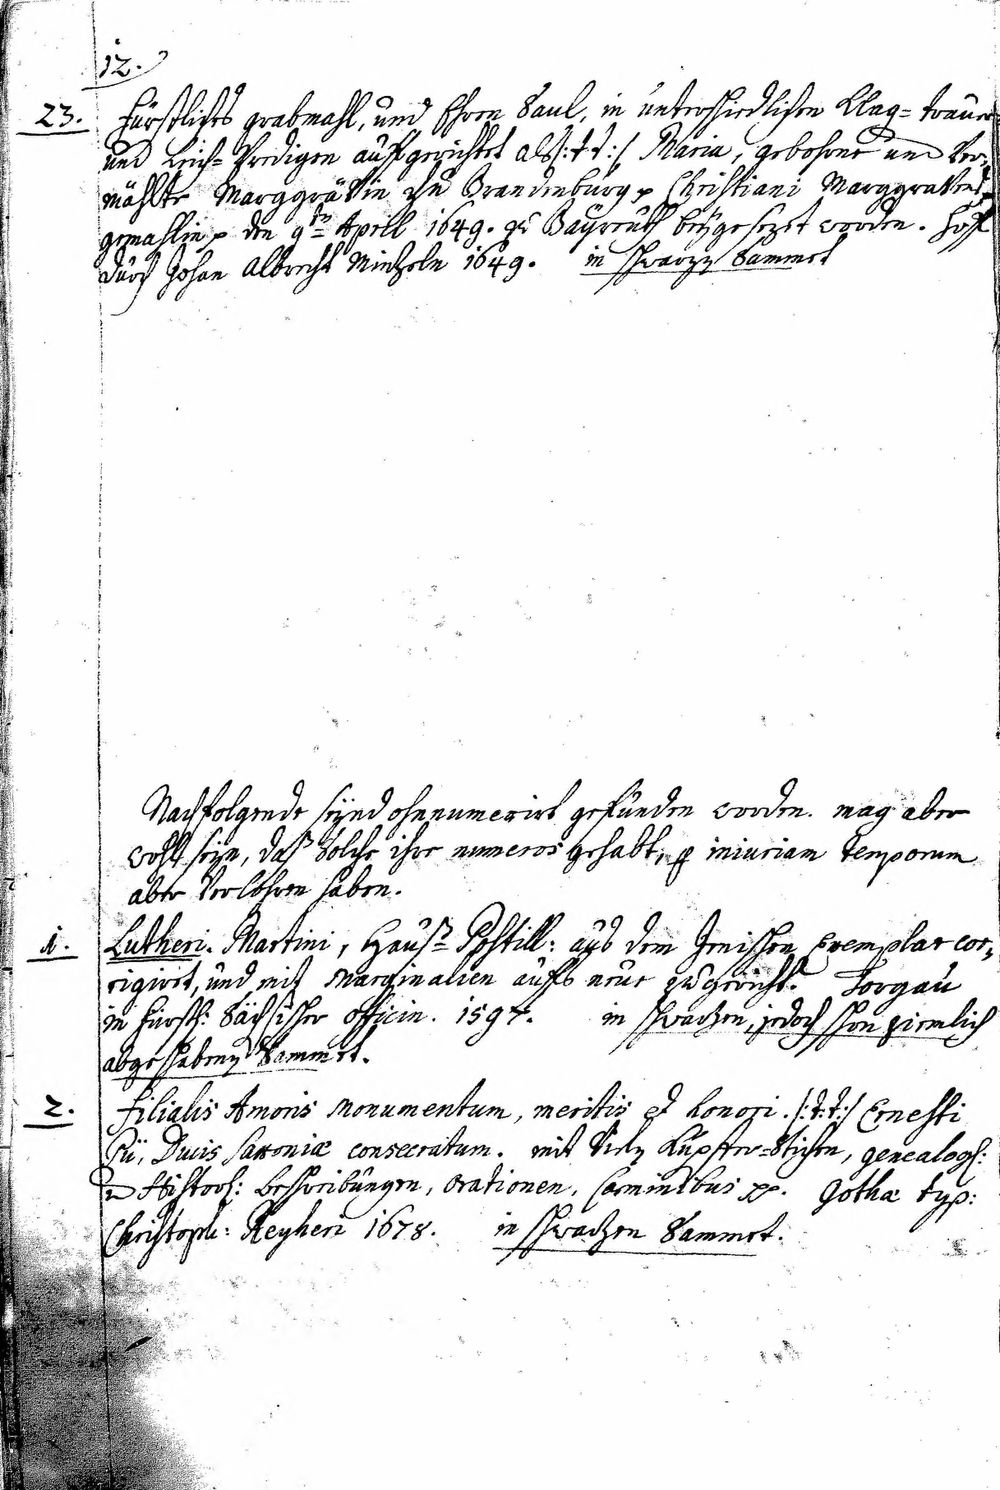 12.
23. Fürstlichs grabmahl, und Ehren Saul, in unterschiedlichen Klag= trauer
und Leich= Predigen auffgerichtet als /: t t :/ Maria, gebohrne und Ver,
mählte Marggräffin zu Brandenburg p Christiani Marggraffens
gemahlin p den 9tn Aprill 1649. zu Bayreuth beygesezet worden. Hoff
durch Johan Albrecht Mintzeln 1649. in schwarzn Sammet
Nachfolgende seynd ohnnumerirt gefunden worden. mag aber
wohl seyn, daß solche ihre numeros gehabt, p iniuriam temporum
aber verlohren haben.
1. Lutheri. Martini, Hauß Postill: aus dem Jenischen Exemplar cor,
rigiret, und mit Marginalien auffs neue zugericht. Torgau
in Fürstl: Sächsischer officin. 1597. in schwartzen, jedoch schon ziemlich
abgeschabenen Sammet.
2. Filialis Amoris Monumentum, meritis et honori. /: t: t :/ Ernesti
Pii, Ducis Saxoniæ consecratum. mit Vieln Kupffer=Stichen, genealogs:
u Historh: beschreibungen, orationen, Carminibus pp. Gothæ typ:
Christoph: Reyheri 1678. in schwartzen Sammet.